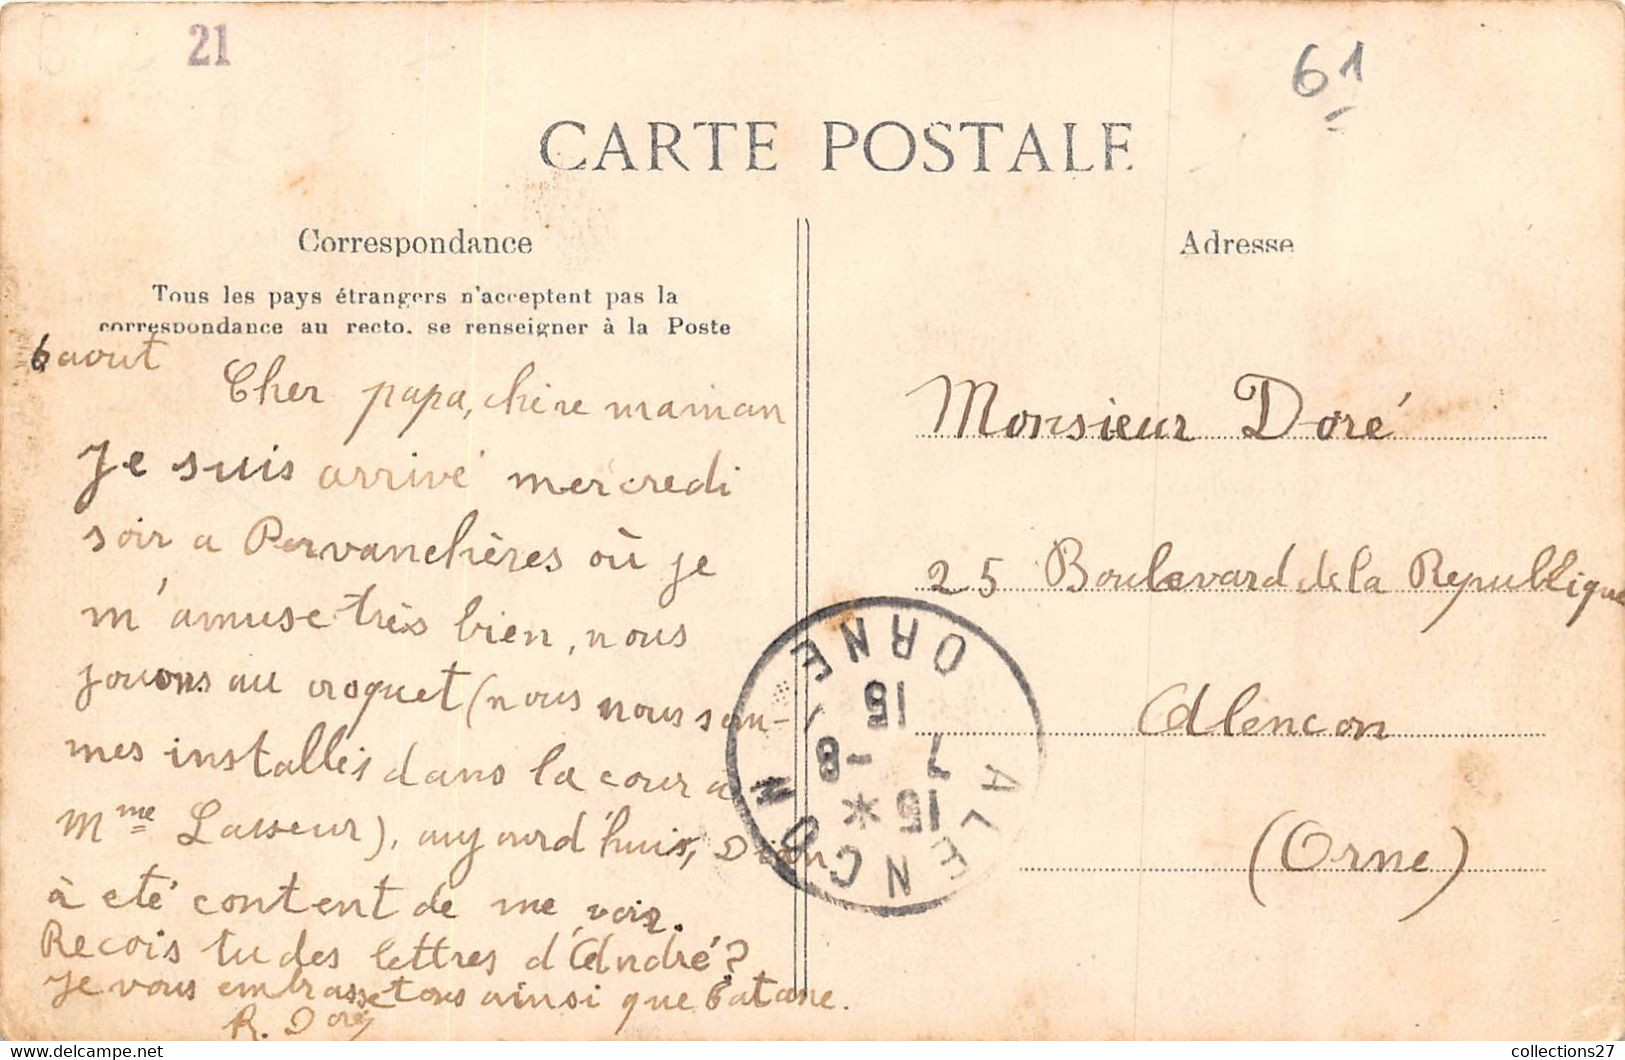 21
61
CARTE POSTALE
Correspondance
Tous les pays étrangers n'acceptent pas la
correspondance au recto. se renseigner à la Poste
6 aout
Cher papa, chère maman
Je suis arrivé mercredi
soir a Pervanchères où je
m'amuse très bien, nous
jouons au croquet (nous nous som-
mes installés dans la cour a
Mme Lasseur), aujourd'huis,
à eté content de me voir.
Recois tu des lettres d'André?
Je vous embrasse tous ainsi que
R. Doré
Adresse
Monsieur Doré
25 Boulevard de la Republique
Alencon
(Orne)
ALENCON ORNE
15 * 7 -8 15
collections27